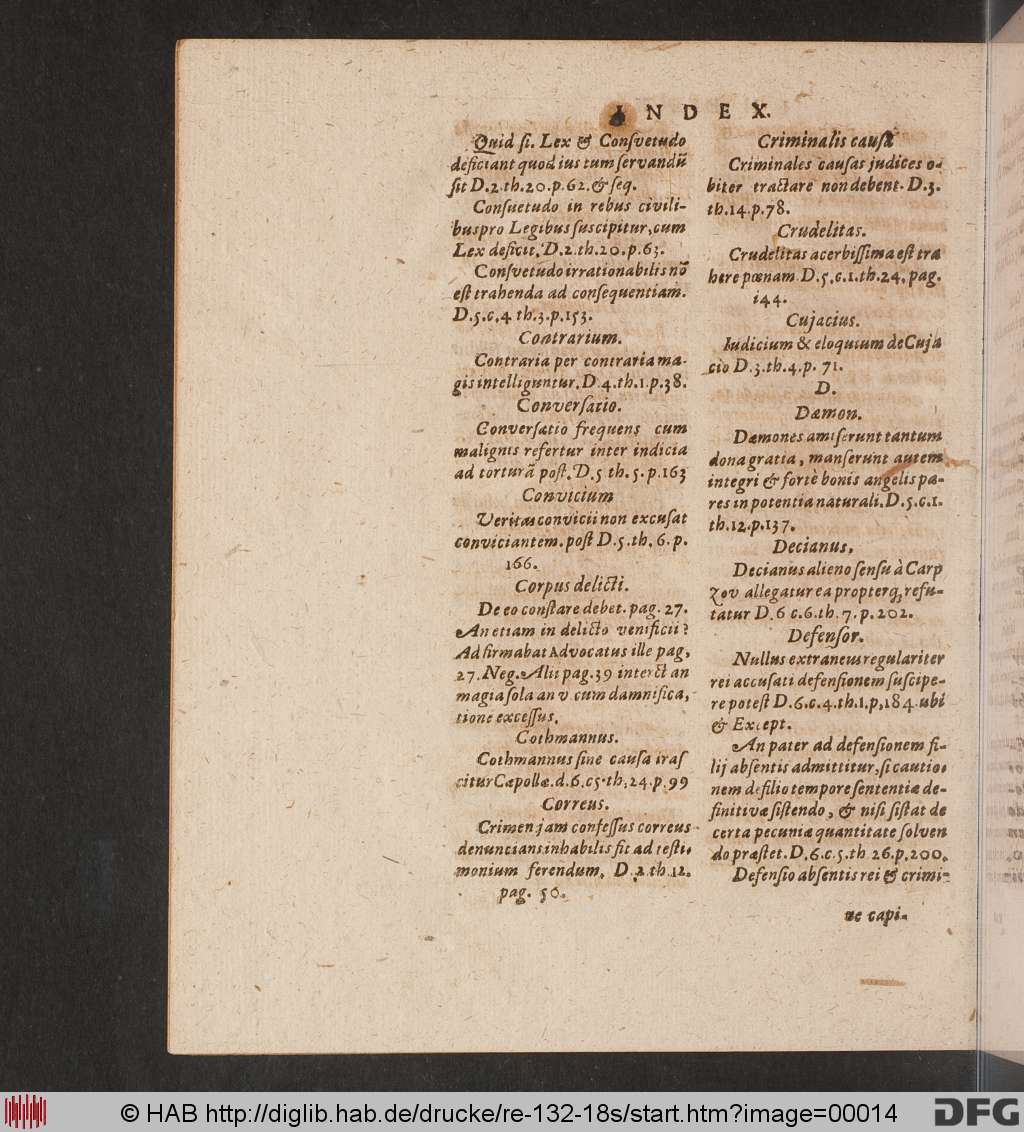 INDEX.
Quid ſi. Lex & Conſvetudo
deficiant quod ius tum ſervandũ
ſit D.2.th.20.p.62.& ſeq.
Conſuetudo in rebus civili-
bus pro Legibus ſuscipitur, cum
Lex deficit. D.2.th.20.p.63.
Conſvetudo irrationabilis nõ
eſt trahenda ad conſequentiam.
D.5.c.4 th.3.p.153.
Contrarium.
Contraria per contraria ma-
gis intelliguntur. D.4.th.1.p.38.
Converſatio.
Converſatio frequens cum
malignis refertur inter indicia
ad torturã poſt. D.5 th.5.p.163
Convicium
Veritas convicii non excuſat
conviciantem. poſt D.5.th.6.p.
166.
Corpus delicti.
De eo conſtare debet. pag. 27.
An etiam in delicto venificii?
Adfirmabat Advocatus ille pag,
27. Neg. Alii pag.39 interct an
magia ſola an v cum damnifica,
tione exceſſus,
Cothmannus.
Cothmannus ſine cauſa iraſ
citur Cæpollæ.d.6.c5.th.24.p.99
Correus.
Crimen jam confeſſus correus
denuncians inhabilis fit ad teſti-
monium ferendum, D.2.th.12.
pag. 56.
Criminalis cauſa
Criminales cauſas judices o-
biter tractare non debent. D.3.
th.14.p.78.
Crudelitas.
Crudelitas acerbiſſima eſt tra
here pœnam D.5.c.1.th.24. pag.
144.
Cujacius.
Iudicium & eloquium de Cuja
cio D.3.th.4.p. 71.
D.
Dæmon.
Dæmones amiſerunt tantum
dona gratia, manſerunt autem
integri & fortè bonis angelis pa-
res in potentia naturali. D.5.c.1.
th.12.p.137.
Decianus,
Decianus alieno ſenſu à Carp
zov allegatur ea propterq; refu-
tatur D.6 c.6.th.7.p.202.
Defenſor.
Nullus extraneus regulariter
rei accuſati defenſionem ſuſcipe-
re poteſt D.6.c.4.th.1.p.184 ubi
& Except.
An pater ad defenſionem fi-
lij abſentis admittitur, ſi cautio-
nem de filio tempore ſententiæ de-
finitivæ ſiſtendo, & niſi ſiſtat de
certa pecuniæ quantitate ſolven
do præſtet. D.6.c.5.th 26.p.200.
Defenſio abſentis rei & crimi-
ne capi-
© HAB http://diglib.hab.de/drucke/re-132-18s/start.htm?image=00014
DFG